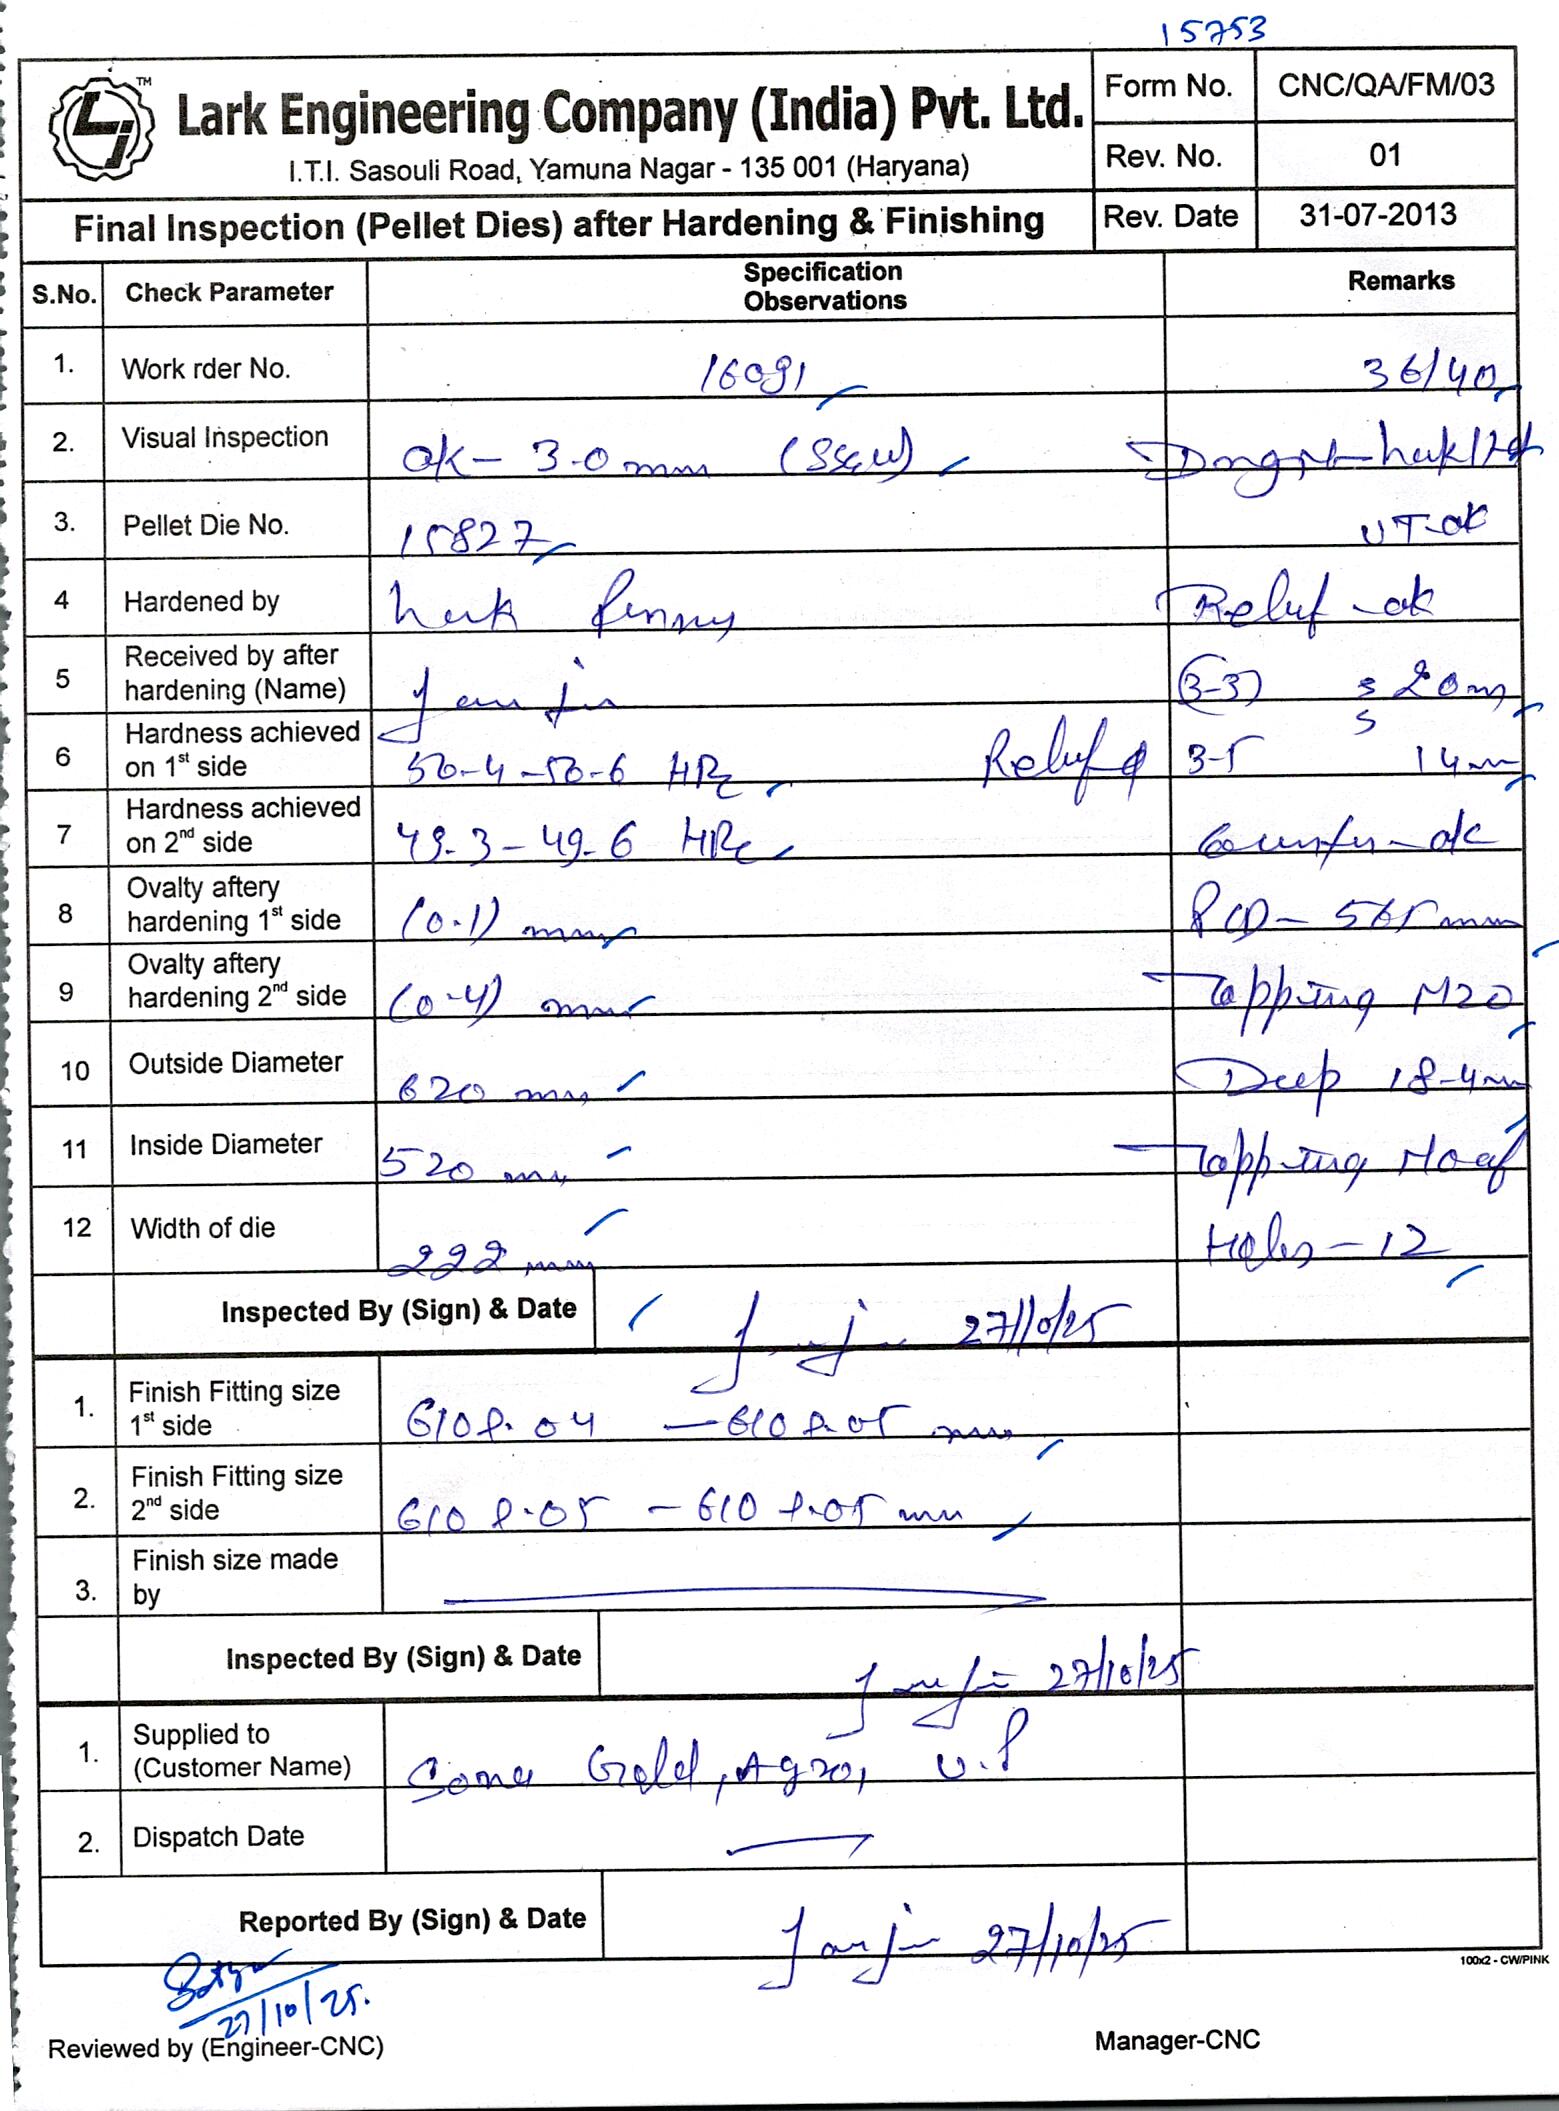 15753
TM
Lark Engineering Company (India) Pvt. Ltd.
I.T.I. Sasouli Road, Yamuna Nagar - 135 001 (Haryana)
Form No. CNC/QA/FM/03
Rev. No. 01
Final Inspection (Pellet Dies) after Hardening & Finishing
Rev. Date 31-07-2013
S.No. Check Parameter Specification Observations Remarks
1. Work rder No. 16091 36/40
2. Visual Inspection OK - 3.0 mm
3. Pellet Die No. 15827 UT-ok
4 Hardened by Relief - ok
5 Received by after hardening (Name) (3-3) 20 m
6 Hardness achieved on 1st side 50-4 - 50-6 HRc Relief φ 3-5 14 m
7 Hardness achieved on 2nd side 49.3 - 49.6 HRc Counter - ok
8 Ovalty aftery hardening 1st side (0.1) mm PCD - 565 mm
9 Ovalty aftery hardening 2nd side (0-4) mm Tapping M20
10 Outside Diameter 620 mm Deep 18-4m
11 Inside Diameter 520 mm Tapping No of
12 Width of die 222 mm Holes - 12
Inspected By (Sign) & Date 27/10/25
1. Finish Fitting size 1st side
2. Finish Fitting size 2nd side
3. Finish size made by
Inspected By (Sign) & Date 27/10/25
1. Supplied to (Customer Name) Sona Gold, Agro, U.P
2. Dispatch Date
Reported By (Sign) & Date 27/10/25
100x2 - CW/PINK
27/10/25.
Reviewed by (Engineer-CNC) Manager-CNC